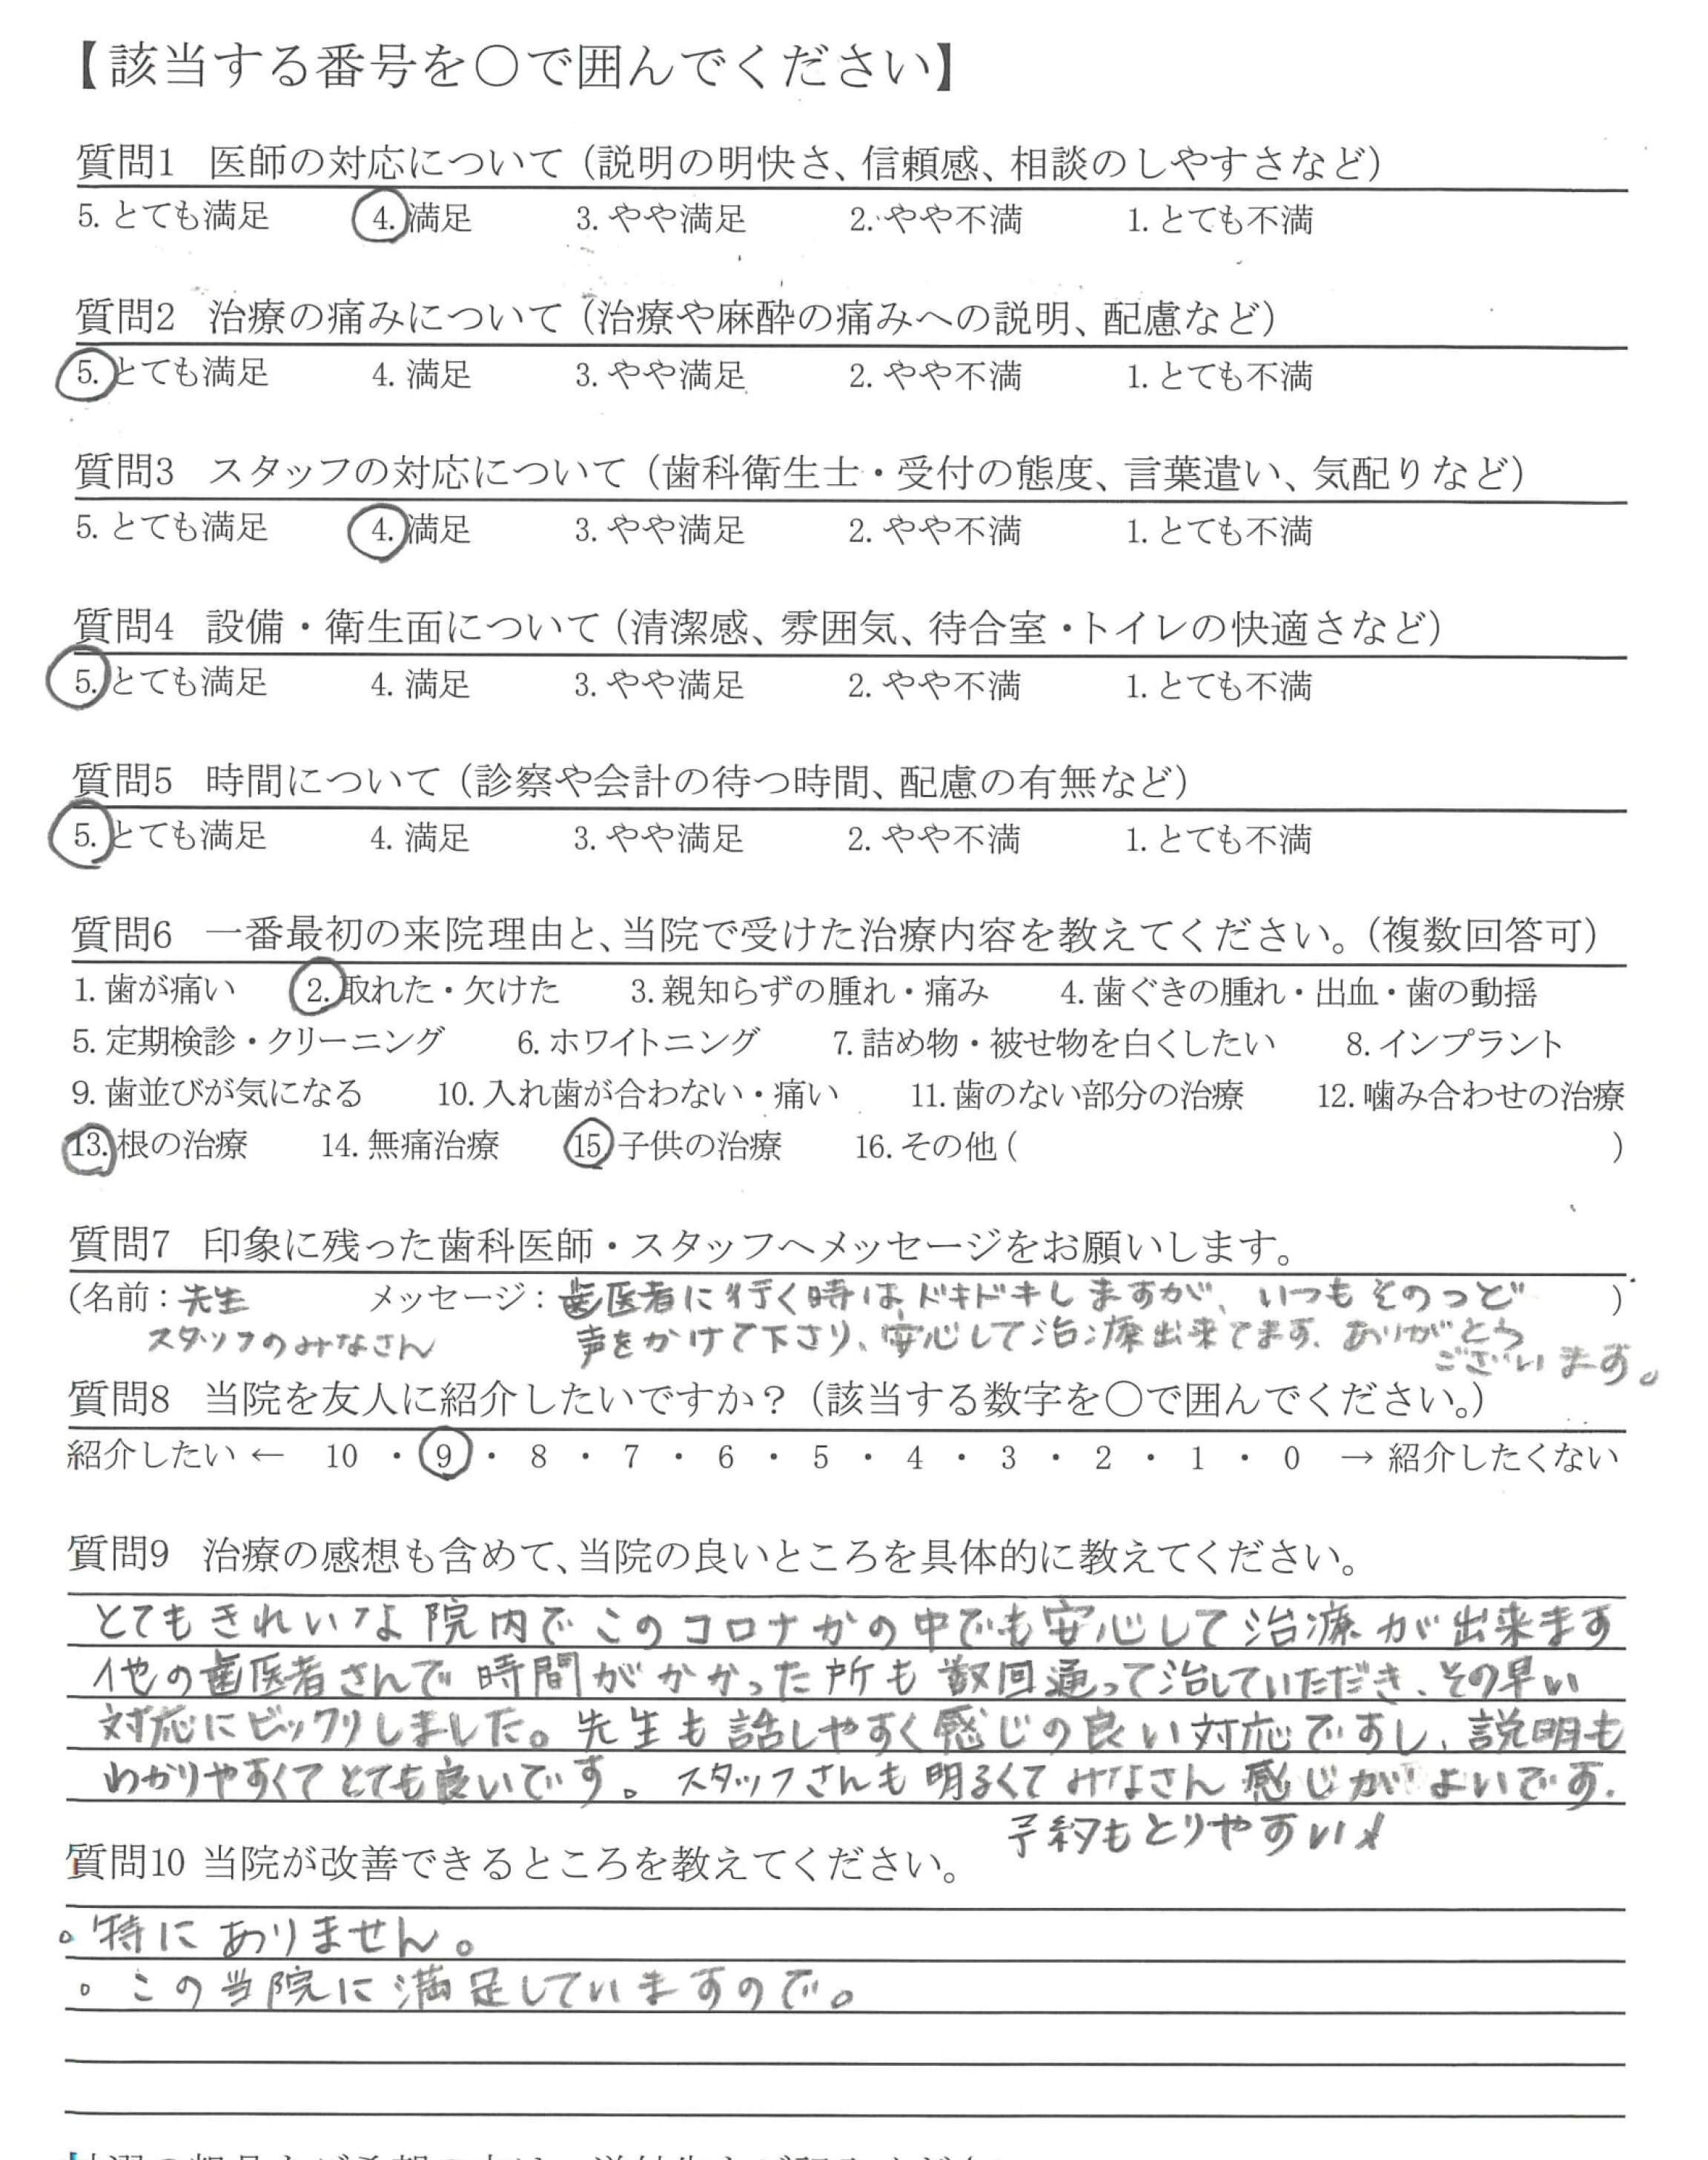 【該当する番号を〇で囲んでください】
質問1 医師の対応について（説明の明快さ、信頼感、相談のしやすさなど）
5. とても満足 4. 満足 3. やや満足 2. やや不満 1. とても不満
質問2 治療の痛みについて（治療や麻酔の痛みへの説明、配慮など）
5. とても満足 4. 満足 3. やや満足 2. やや不満 1. とても不満
質問3 スタッフの対応について（歯科衛生士・受付の態度、言葉遣い、気配りなど）
5. とても満足 4. 満足 3. やや満足 2. やや不満 1. とても不満
質問4 設備・衛生面について（清潔感、雰囲気、待合室・トイレの快適さなど）
5. とても満足 4. 満足 3. やや満足 2. やや不満 1. とても不満
質問5 時間について（診察や会計の待つ時間、配慮の有無など）
5. とても満足 4. 満足 3. やや満足 2. やや不満 1. とても不満
質問6 一番最初の来院理由と、当院で受けた治療内容を教えてください。（複数回答可）
1. 歯が痛い 2. 取れた・欠けた 3. 親知らずの腫れ・痛み 4. 歯ぐきの腫れ・出血・歯の動揺
5. 定期検診・クリーニング 6. ホワイトニング 7. 詰め物・被せ物を白くしたい 8. インプラント
9. 歯並びが気になる 10. 入れ歯が合わない・痛い 11. 歯のない部分の治療 12. 噛み合わせの治療
13. 根の治療 14. 無痛治療 15. 子供の治療 16. その他 ( )
質問7 印象に残った歯科医師・スタッフへメッセージをお願いします。
(名前：先生 メッセージ：歯医者に行く時はドキドキしますが、いつもそのつど )
スタッフのみなさん 声をかけて下さり、安心して治療出来てます。ありがとう
ございます。
質問8 当院を友人に紹介したいですか？（該当する数字を〇で囲んでください。）
紹介したい ← 10 ・ 9 ・ 8 ・ 7 ・ 6 ・ 5 ・ 4 ・ 3 ・ 2 ・ 1 ・ 0 → 紹介したくない
質問9 治療の感想も含めて、当院の良いところを具体的に教えてください。
とてもきれいな院内でこのコロナかの中でも安心して治療が出来ます
他の歯医者さんで時間がかかった所も数回通って治していただき、その早い
対応にビックリしました。先生も話しやすく感じの良い対応ですし、説明も
わかりやすくてとても良いです。スタッフさんも明るくてみなさん感じがよいです.
予約もとりやすい!
質問10 当院が改善できるところを教えてください。
。特にありません。
。この当院に満足していますので。